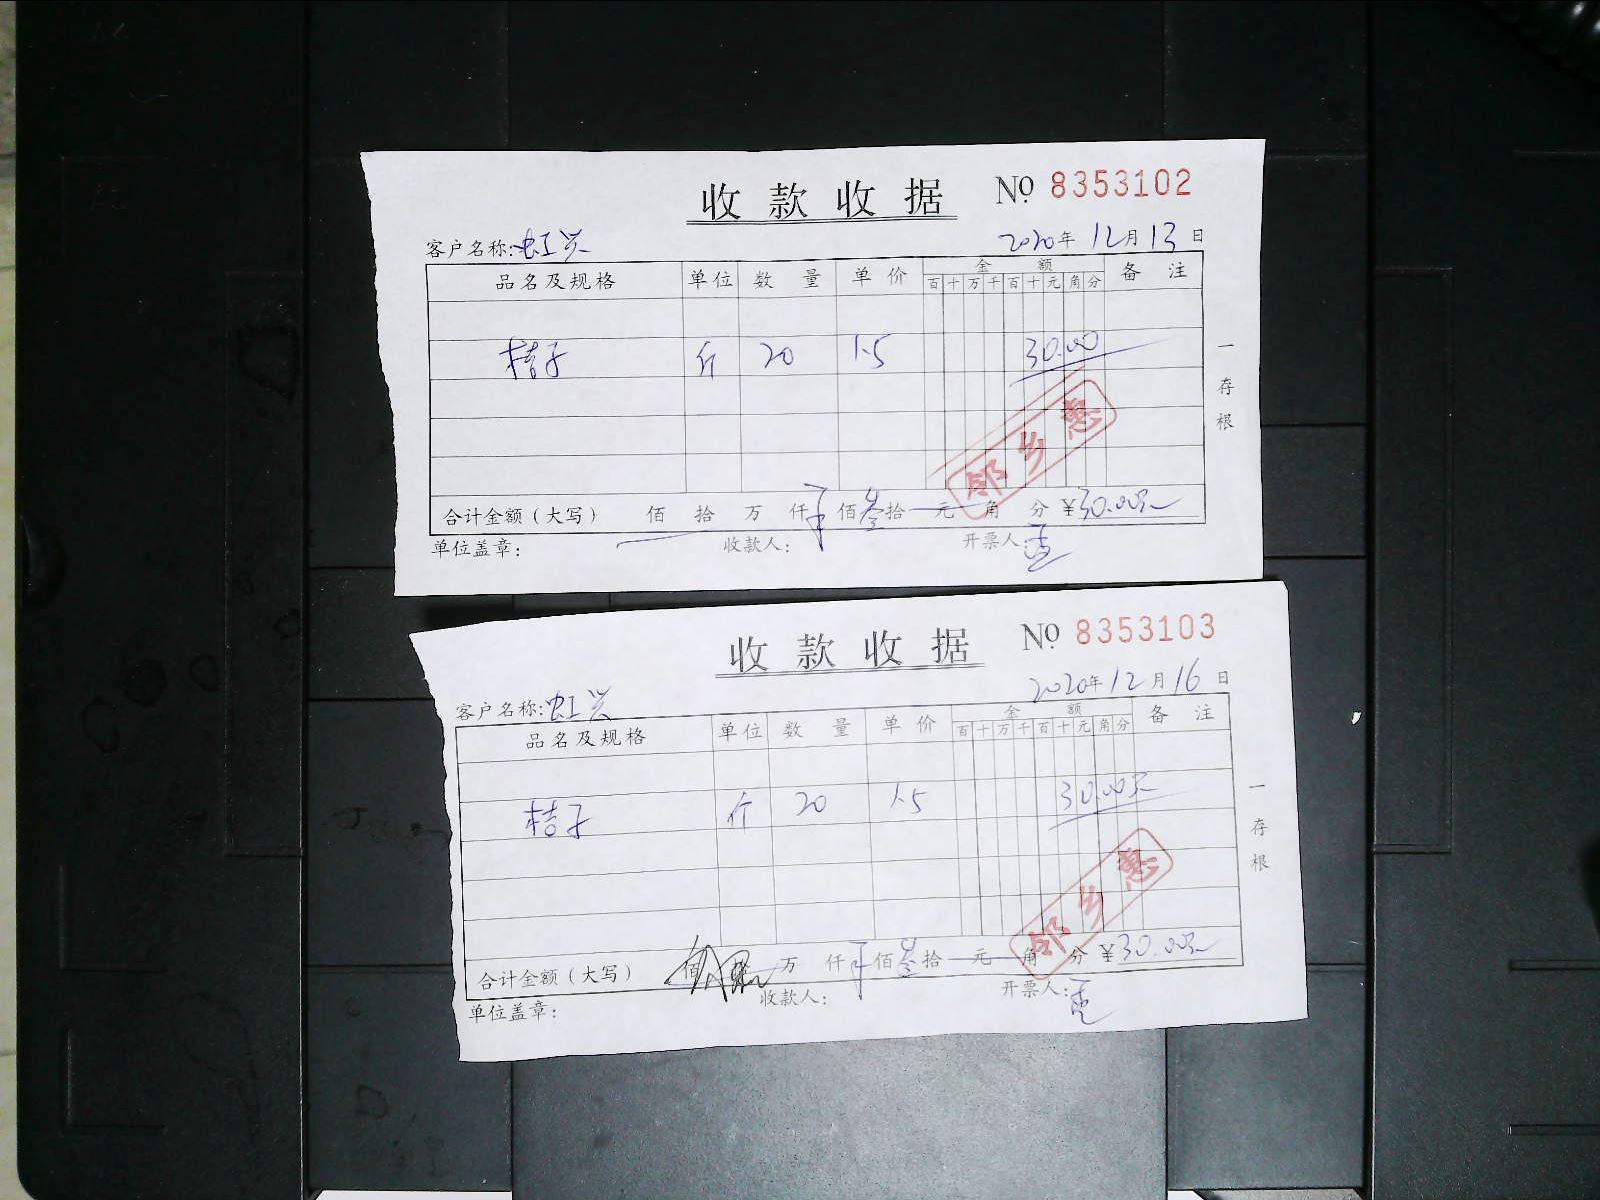 收款收据 № 8353102
客户名称:虹兴 2020年12月13日
品名及规格 单位 数量 单价 金额 备注
百十万千百十元角分
桔子 斤 20 1.5 30.00
一存根
邻乡惠
合计金额(大写) 佰 拾 万 仟 佰叁拾 元 角 分 ¥30.00元
单位盖章: 收款人: 开票人:
收款收据 № 8353103
客户名称:虹兴 2020年12月16日
品名及规格 单位 数量 单价 金额 备注
百十万千百十元角分
桔子 斤 20 1.5 30.00元
一存根
邻乡惠
合计金额(大写) 佰 拾 万 仟 佰叁拾 元 角 分 ¥30.00元
单位盖章: 收款人: 开票人: